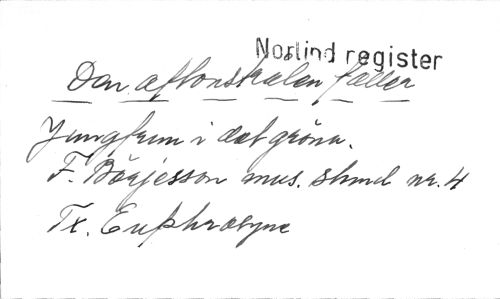 Norlind register
Den aftonstrålen fäller
Jungfrun i det gröna.
F. Börjesson mus. stund nr. 4
Tx. Euphrosyne